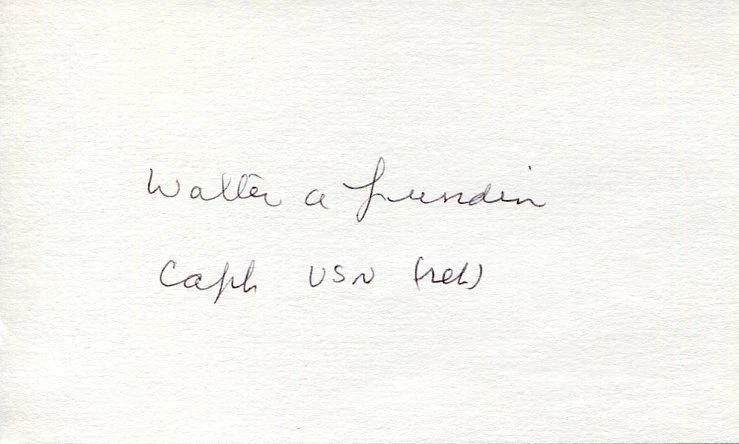 Walter a Lundin
Capt USN (ret)